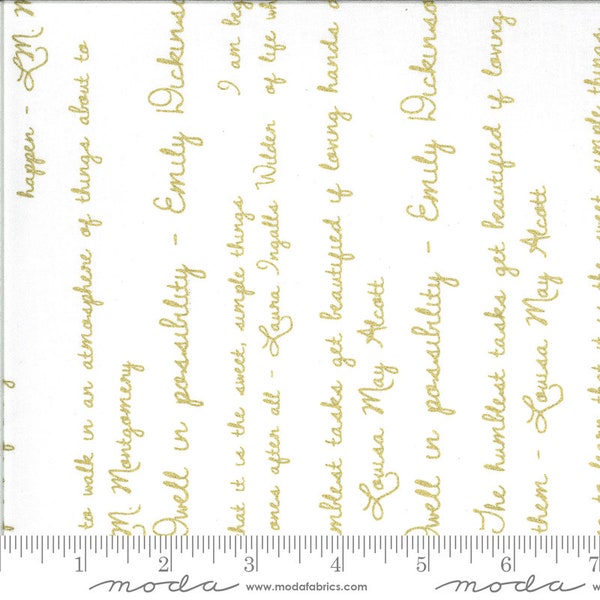 happen - L.M. M
to walk in an atmosphere of things about to
M. Montgomery
Dwell in possibility - Emily Dickinso
I am beg
hat it is the sweet, simple things
of life wh
ones after all - Laura Ingalls Wilder
mblest tasks get beautified if loving hands
Louisa May Alcott
Dwell in possibility - Emily Dickinso
The humblest tasks get beautified if loving
them - Louisa May Alcott
to learn that it is the sweet, simple things
1 2 3 4 5 6 7
moda www.modafabrics.com moda